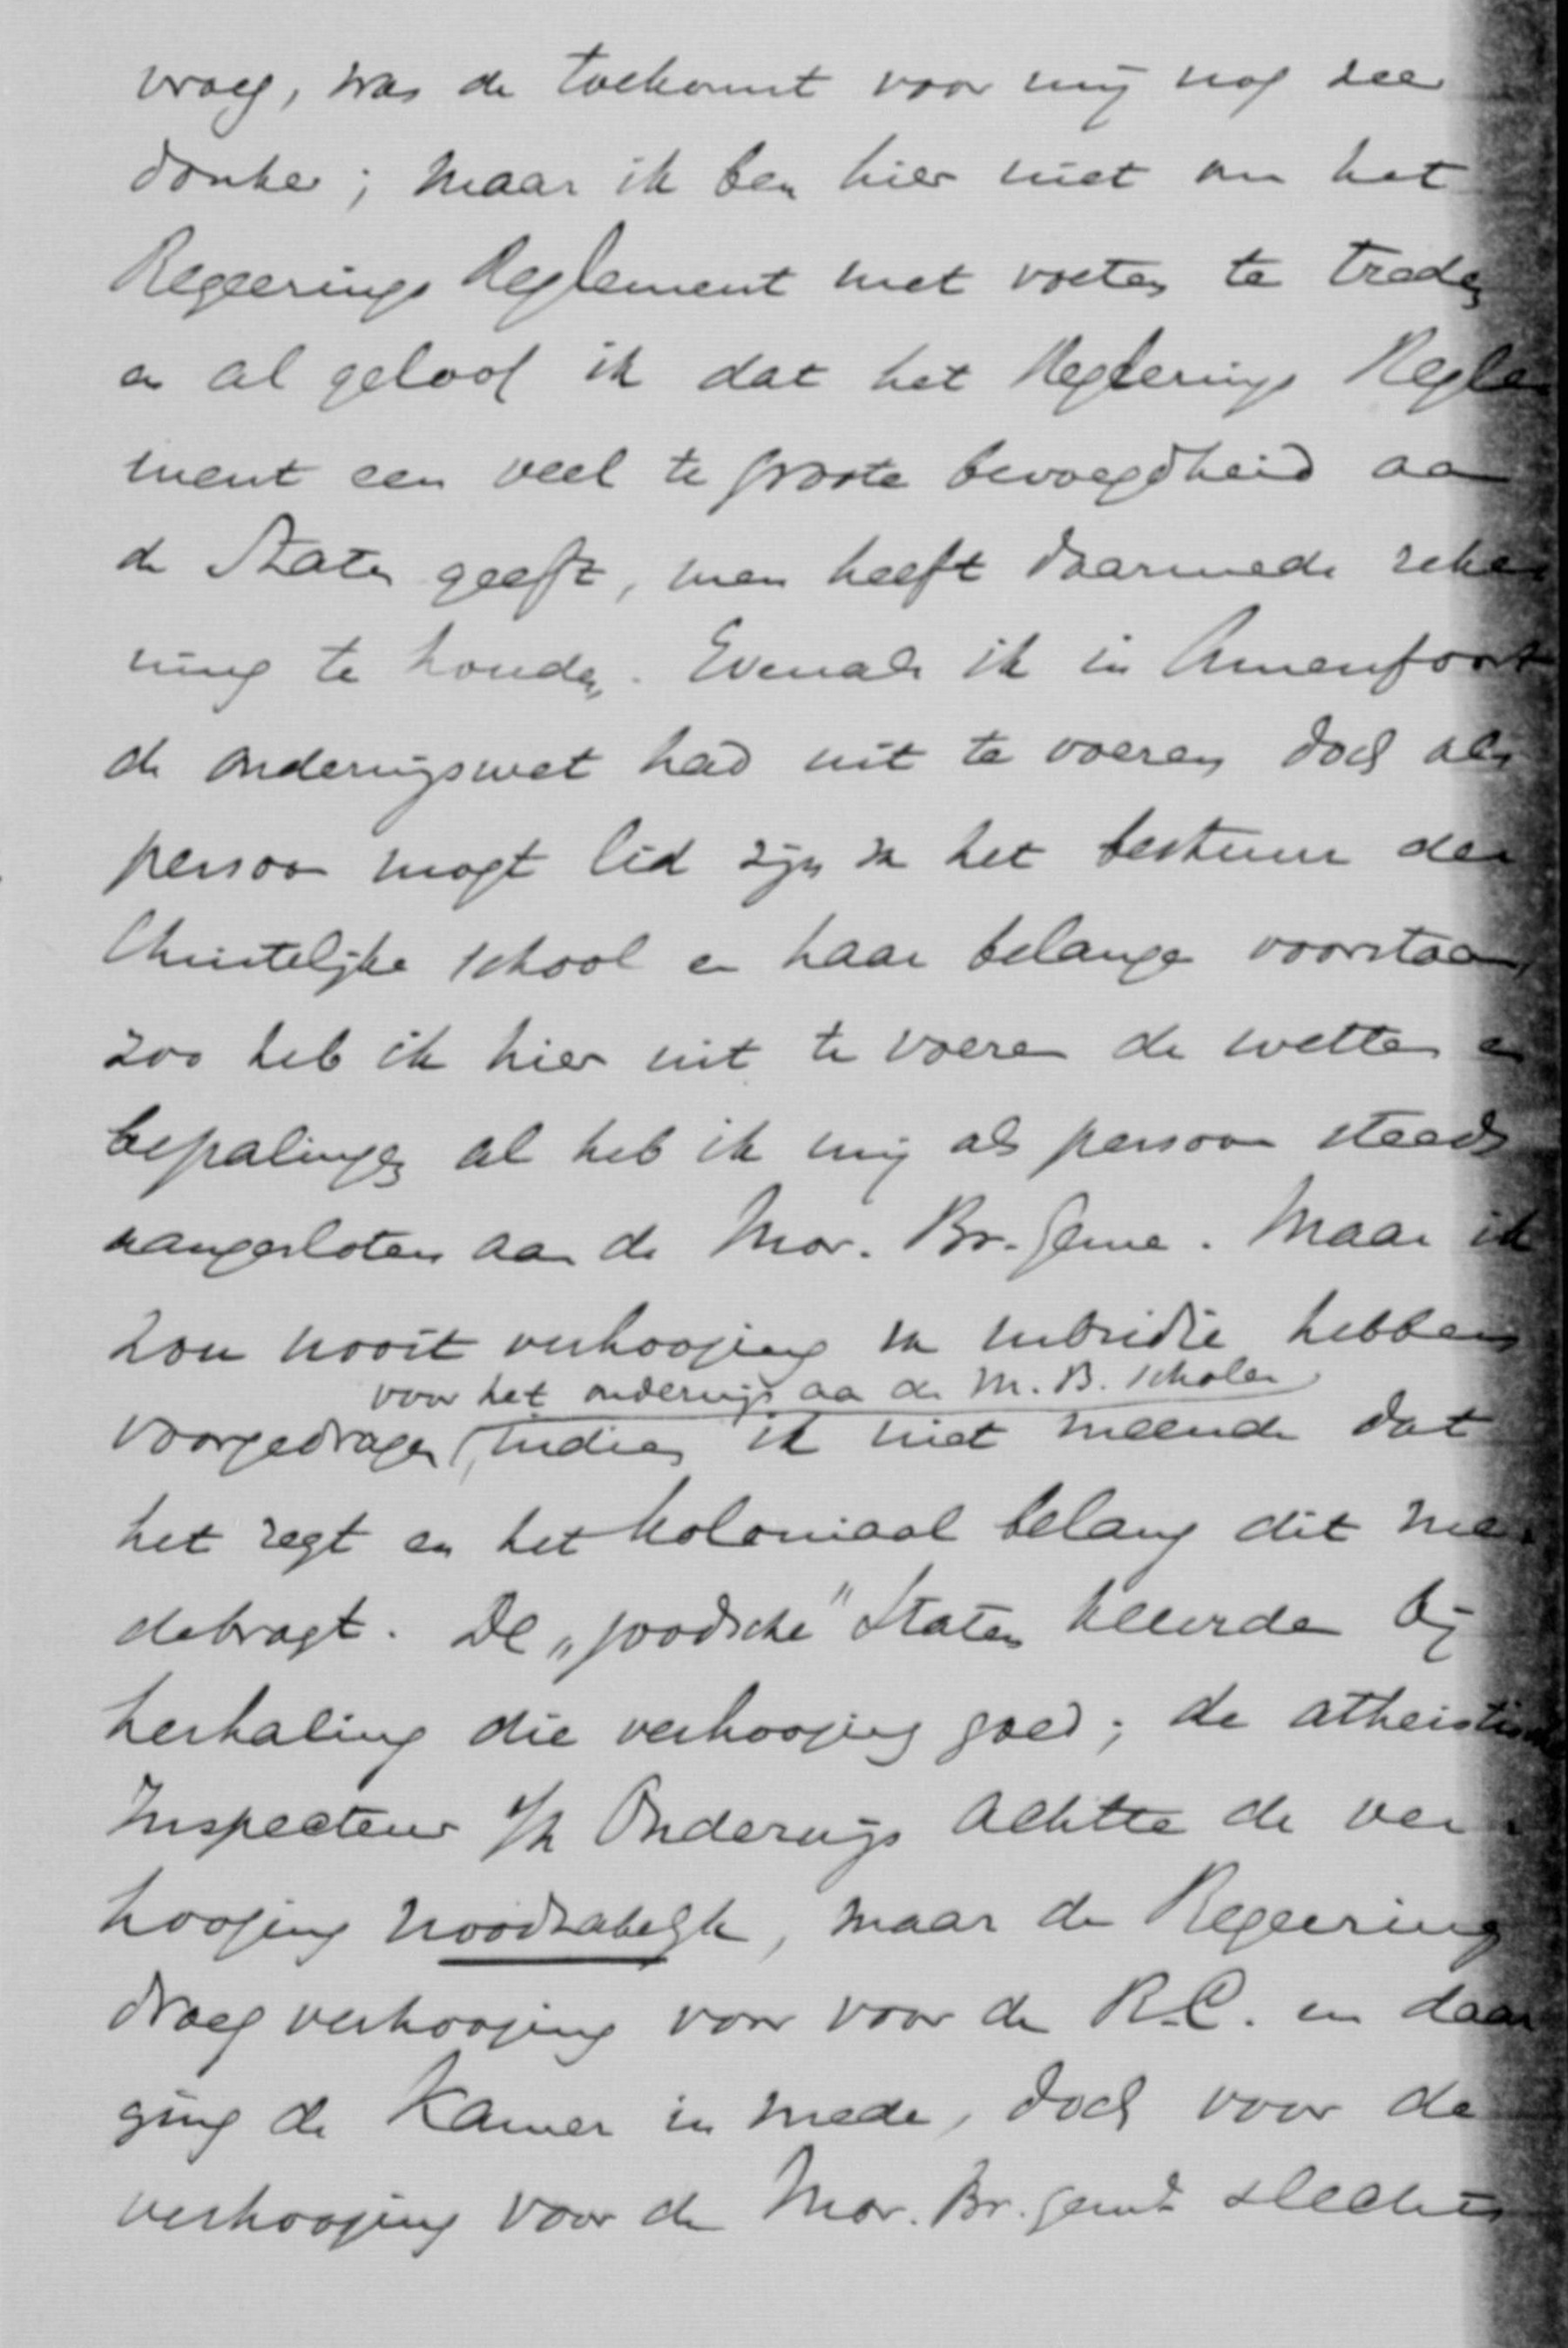 vroeg, was de toekomst voor mij nog zeer
donker; maar ik ben hier niet om het
Regeerings Reglement met voeten te treden
en al geloof ik dat het Regeerings Regle
ment een veel te groote bevoegdheid aan
de Staten geeft, men heeft daarmede reke
ning te houden. Evenals ik in Amersfoort
de onderwijswet had uit te voeren doch als
persoon mogt lid zijn van het bestuur der
Christelijke school en haar belangen voorstaan,
zoo heb ik hier uit te voeren de wetten en
bepalingen al heb ik mij als persoon steeds
aangesloten aan de Mor. Br. Geme. Maar ik
zou nooit verhooging van subsidie hebben
voor het onderwijs aan de M. B. scholen
voorgedragen, indien ik niet meende dat
het regt en het koloniaal belang dit me-
debragt. De „joodsche" Staten keurden bij
herhaling die verhooging goed; de atheistische
Inspecteur v/h Onderwijs achtte de ver-
hooging noodzakelijk, maar de Regeering
droeg verhooging voor voor de R.C. en daar
ging de Kamer in mede, doch voor de
verhooging voor de Mor. Br. Gemte slechts